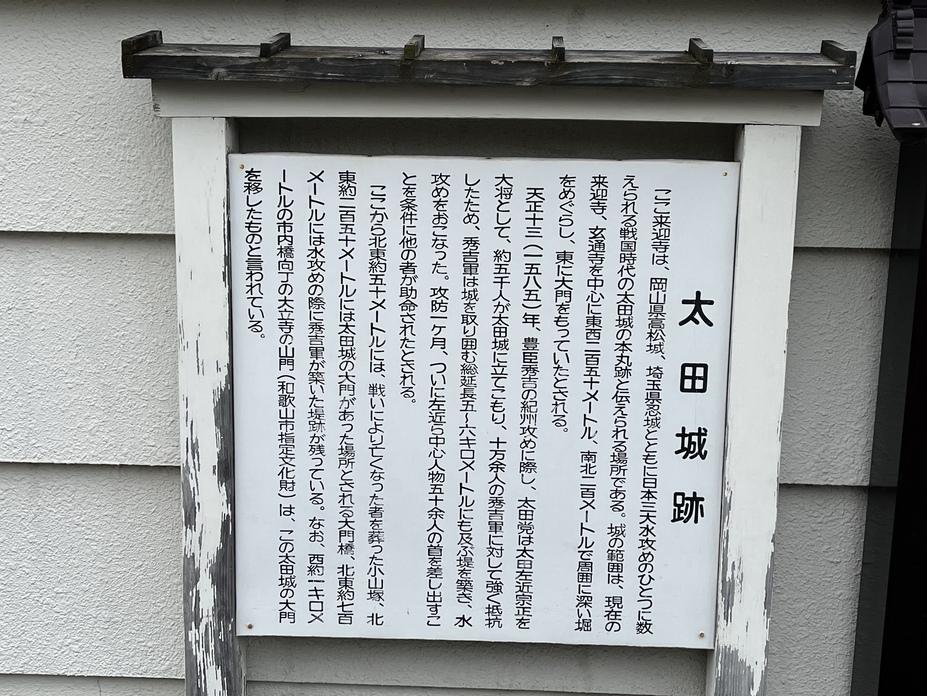 太田城跡
ここ来迎寺は、岡山県高松城、埼玉県忍城とともに日本三大水攻めのひとつに数
えられる戦国時代の太田城の本丸跡と伝えられる場所である。城の範囲は、現在の
来迎寺、玄通寺を中心に東西二百五十メートル、南北二百メートルで周囲に深い堀
をめぐらし、東に大門をもっていたとされる。
天正十三(一五八五)年、豊臣秀吉の紀州攻めに際し、太田党は太田左近宗正を
大将として、約五千人が太田城に立てこもり、十万余人の秀吉軍に対して強く抵抗
したため、秀吉軍は城を取り囲む総延長五~六キロメートルにも及ぶ堤を築き、水
攻めをおこなった。攻防一ヶ月、ついに左近ら中心人物五十余人の首を差し出すこ
とを条件に他の者が助命されたとされる。
ここから北東約五十メートルには、戦いにより亡くなった者を葬った小山塚、北
東約二百五十メートルには太田城の大門があった場所とされる大門橋、北東約七百
メートルには水攻めの際に秀吉軍が築いた堤跡が残っている。なお、西約一キロメ
ートルの市内橋向丁の大立寺の山門(和歌山市指定文化財)は、この太田城の大門
を移したものと言われている。